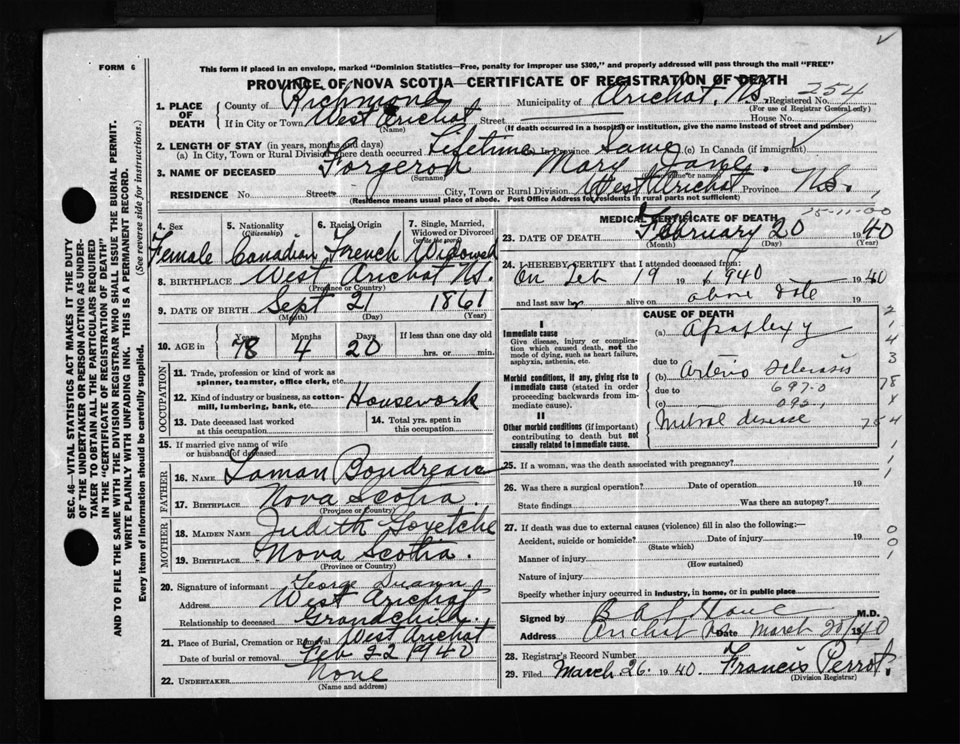 FORM 6
This form if placed in an envelope, marked "Dominion Statistics—Free, penalty for improper use $300," and properly addressed will pass through the mail "FREE"
PROVINCE OF NOVA SCOTIA—CERTIFICATE OF REGISTRATION OF DEATH
254
1. PLACE OF DEATH County of Richmond Municipality of Arichat, N.S. Registered No.
(For use of Registrar General only)
If in City or Town West Arichat Street House No.
(Name) (If death occurred in a hospital or institution, give the name instead of street and number)
2. LENGTH OF STAY (in years, months and days)
(a) In City, Town or Rural Division where death occurred Lifetime In Province Same (c) In Canada (if immigrant)
3. NAME OF DECEASED Forgeron Mary Jane
(Surname)
RESIDENCE No. Street City, Town or Rural Division West Arichat Province N.S.
(Residence means usual place of abode. Post Office Address for residents in rural parts not sufficient)
4. Sex 5. Nationality (Citizenship) 6. Racial Origin 7. Single, Married, Widowed or Divorced (write the word)
Female Canadian French Widowed
8. BIRTHPLACE West Arichat N.S.
(Province or Country)
9. DATE OF BIRTH Sept 21 1861
(Month) (Day) (Year)
10. AGE in Years Months Days If less than one day old
78 4 20 hrs. or min.
OCCUPATION
11. Trade, profession or kind of work as spinner, teamster, office clerk, etc.
12. Kind of industry or business, as cotton-mill, lumbering, bank, etc. Housework
13. Date deceased last worked at this occupation 14. Total yrs. spent in this occupation
15. If married give name of wife or husband of deceased
FATHER
16. NAME Laman Boudreau
17. BIRTHPLACE Nova Scotia
(Province or Country)
MOTHER
18. MAIDEN NAME Judith Goyetche
19. BIRTHPLACE Nova Scotia.
(Province or Country)
20. Signature of informant George
Address West Arichat
Relationship to deceased Grandchild
21. Place of Burial, Cremation or Removal West Arichat
Date of burial or removal Feb 22 1940
22. UNDERTAKER None
(Name and address)
MEDICAL CERTIFICATE OF DEATH
23. DATE OF DEATH February 20 1940
(Month) (Day) (Year)
24. I HEREBY CERTIFY that I attended deceased from:
On Feb 19 1940 1940
and last saw h alive on above date 19
CAUSE OF DEATH
I
Immediate cause
Give disease, injury or complication which caused death, not the mode of dying, such as heart failure, asphyxia, asthenia, etc.
(a) Apoplexy
due to
Morbid conditions, if any, giving rise to immediate cause (stated in order proceeding backwards from immediate cause).
(b) Arterio sclerosis
due to 697-0
(c) 092
II
Other morbid conditions (if important) contributing to death but not causally related to immediate cause.
Mitral disease
25. If a woman, was the death associated with pregnancy?
26. Was there a surgical operation? Date of operation 19
State findings Was there an autopsy?
27. If death was due to external causes (violence) fill in also the following:—
Accident, suicide or homicide? Date of injury 19
(State which)
Manner of injury
(How sustained)
Nature of injury
Specify whether injury occurred in Industry, in home, or in public place
Signed by M.D.
Address Arichat Date March 20/1940
28. Registrar's Record Number
29. Filed March 26. 1940 Francis Perrot.
(Division Registrar)
SEC. 46—VITAL STATISTICS ACT MAKES IT THE DUTY
OF THE UNDERTAKER OR PERSON ACTING AS UNDER-
TAKER TO OBTAIN ALL THE PARTICULARS REQUIRED
IN THE "CERTIFICATE OF REGISTRATION OF DEATH"
AND TO FILE THE SAME WITH THE DIVISION REGISTRAR WHO SHALL ISSUE THE BURIAL PERMIT.
WRITE PLAINLY WITH UNFADING INK. THIS IS A PERMANENT RECORD.
Every item of information should be carefully supplied. (See reverse side for instructions.)